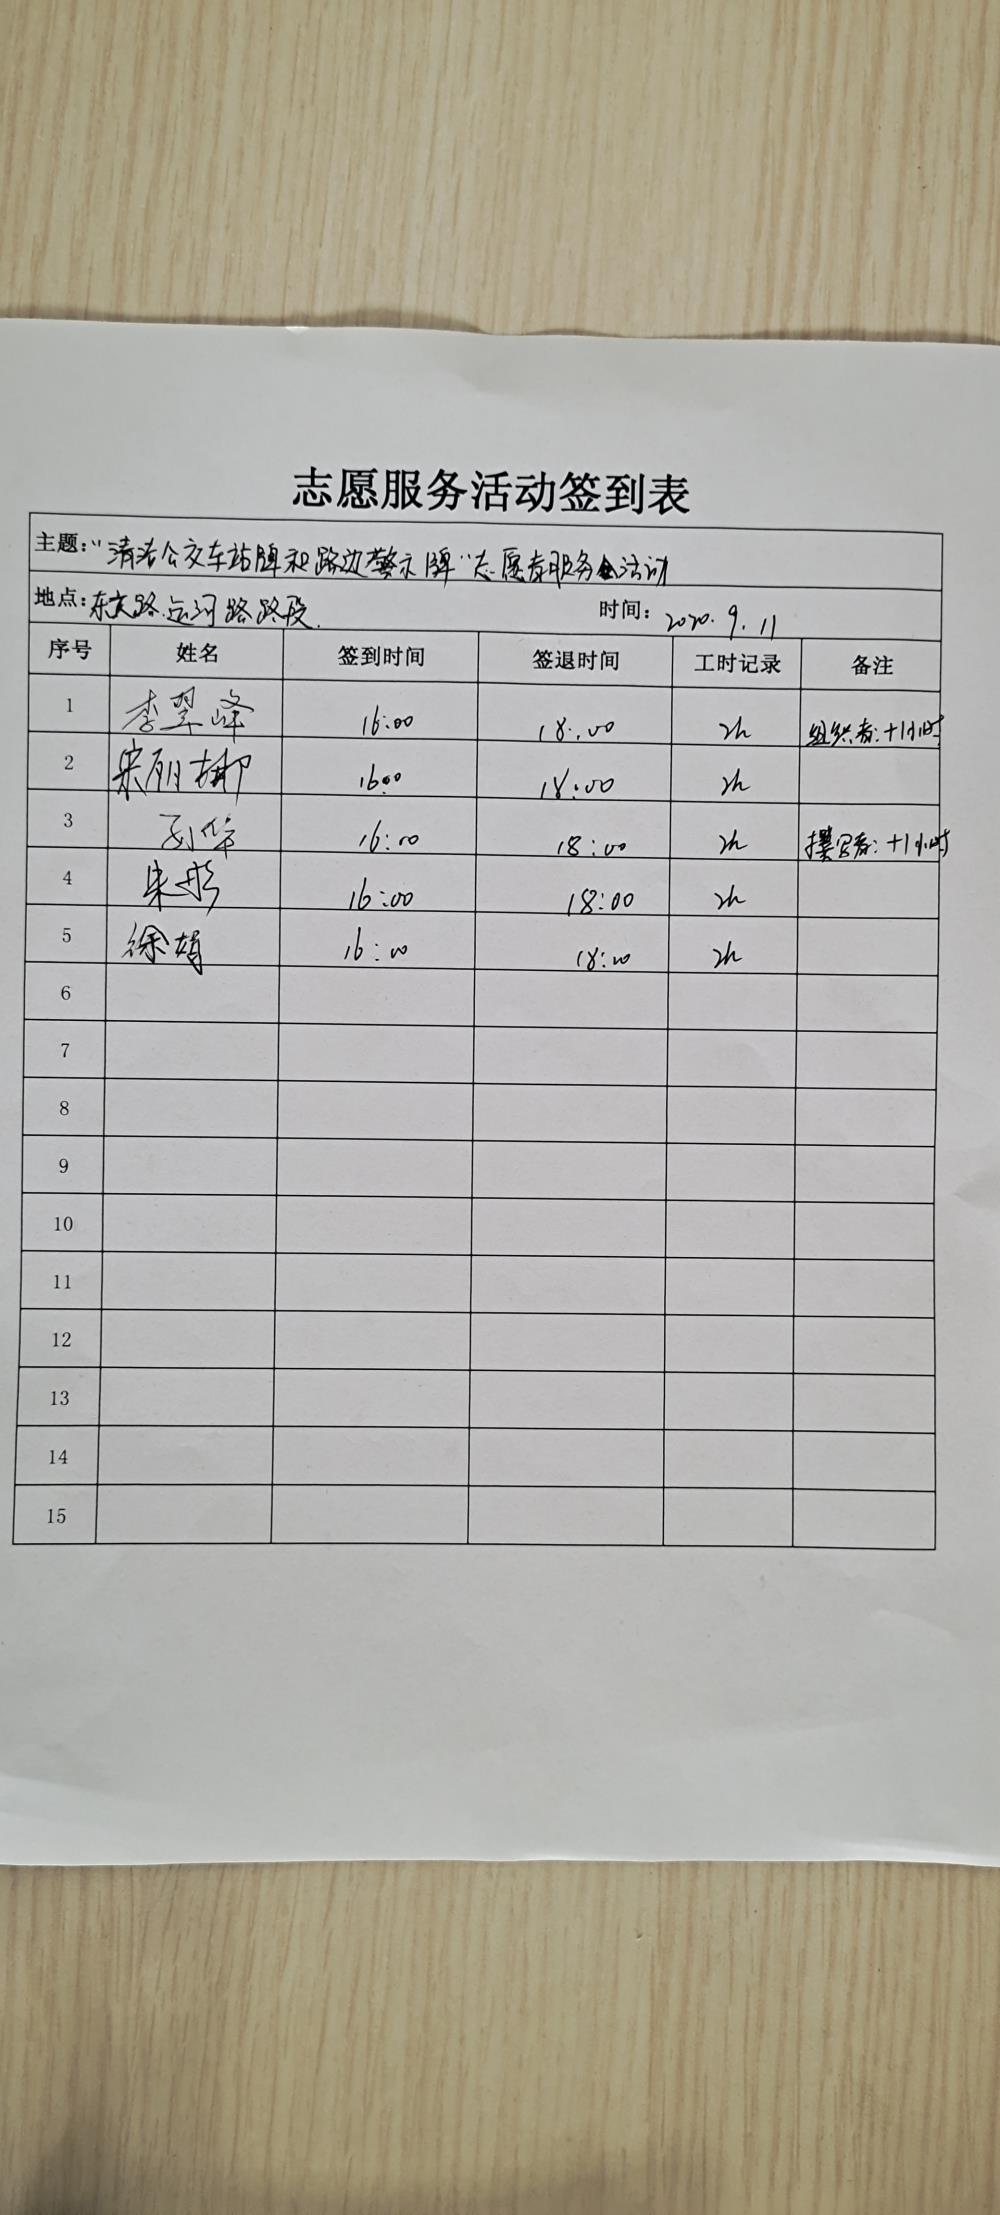 志愿服务活动签到表
主题:“清洁公交车站牌和路边警示牌”志愿者服务活动
地点:东文路.运河路路段. 时间: 2020.9.11
序号 姓名 签到时间 签退时间 工时记录 备注
1 李翠峰 16:00 18:00 2h 组织者:+1小时
2 宋丽娜 16:00 18:00 2h
3 孙华 16:00 18:00 2h 撰写者:+1小时
4 朱彤 16:00 18:00 2h
5 徐娟 16:00 18:00 2h
6
7
8
9
10
11
12
13
14
15